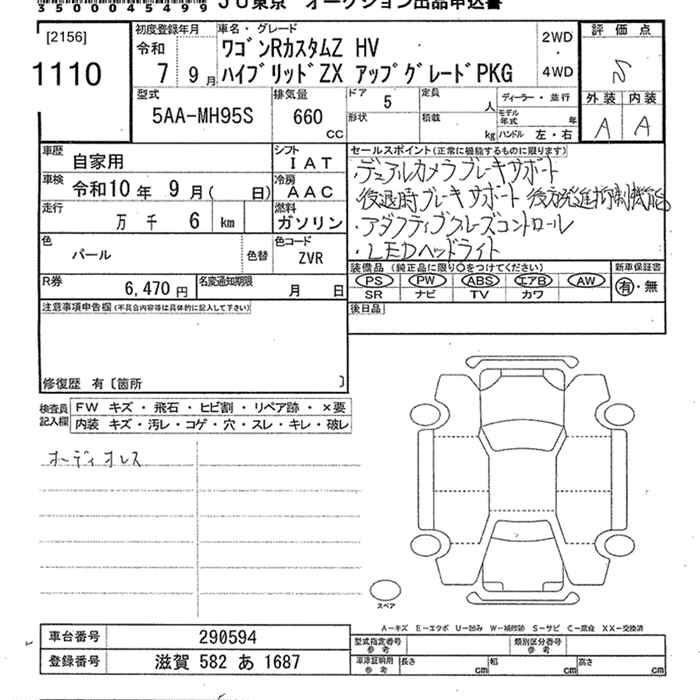 35000045499 JU東京 オークション出品申込書
[2156]
1110
初度登録年月
令和
7 9月
車名・グレード
ワゴンRカスタムZ HV
ハイブリッドZX アップグレードPKG
2WD
4WD
評価点
S
外装 内装
A A
型式
5AA-MH95S
排気量
660
CC
ドア 5
形状
定員 人
積載 kg
ディーラー・並行
モデル年式 年
ハンドル 左・右
車歴
自家用
シフト
IAT
車検
令和10年 9月( 日)
冷房
AAC
走行
万 千 6 km
燃料
ガソリン
色
パール
色替
色コード
ZVR
R券
6,470円
名変通知期限
月 日
セールスポイント(正常に機能するものに限ります)
・デュアルカメラブレーキサポート
後退時ブレーキサポート 後方発進抑制機能
・アダプティブクルーズコントロール
・LEDヘッドライト
装備品 (純正品に限り○をつけてください)
PS PW ABS エアB AW
SR ナビ TV カワ
新車保証書
有・無
後日品
注意事項申告欄(不具合内容等は具体的に記入して下さい)
修復歴 有〔箇所 〕
検査員記入欄
FW キズ・飛石・ヒビ割・リペア跡・×要
内装 キズ・汚レ・コゲ・穴・スレ・キレ・破レ
オーディオレス
スペア
A-キズ E-エクボ U-凹み W-補修跡 S-サビ C-腐食 XX-交換済
車台番号 290594
登録番号 滋賀 582 あ 1687
型式指定番号 参考
類別区分番号 参考
車庫証明用 参考
長さ cm
幅 cm
高さ cm